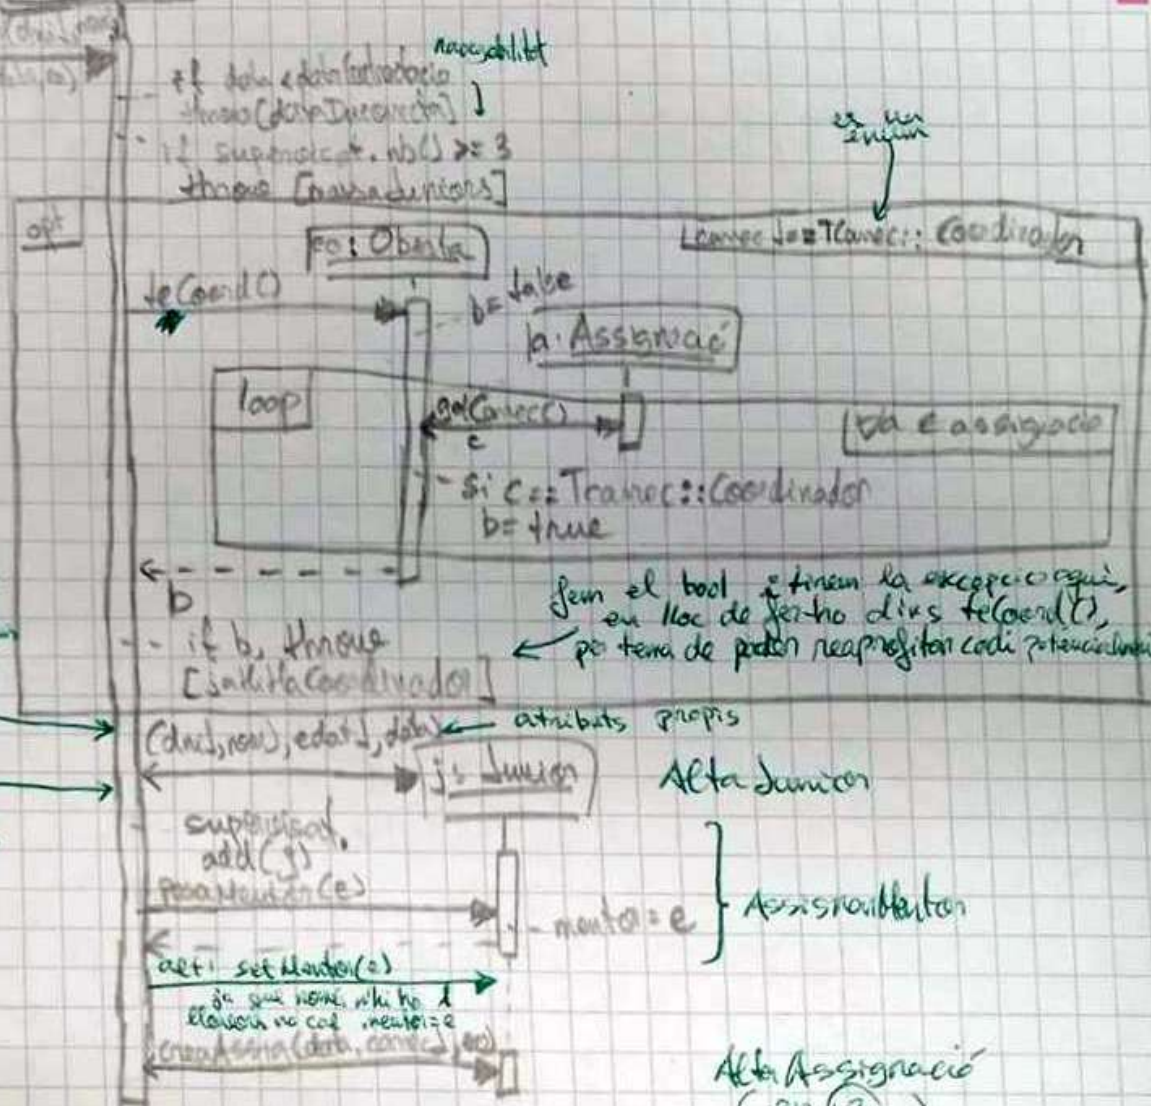 navegabilitat
if data < dataIntroduccio
throw [dataIncorrecta]
if supervisat.nb() >= 3
throw [massaJuniors]
es un
enum
opt
eo: Oberta
[carrecJ == TCarrec:: Coordinador
teCoord()
b= false
a: Assignació
loop
getCarrec()
c
∀a ∈ assignacio
- si c == Tcarrec::Coordinador
b= true
b
fem el bool i tirem la excepcio aqui,
en lloc de fer-ho dins teCoord(),
per tema de poder reaprofitar codi potencialment
if b, throw
[jaHiHaCoordinador]
(dniJ, nomJ, edatJ, data)
atributs propis
j: Junior
Alta Junior
supervisat.
add(j)
posaMentor(e)
mentor = e
AssignarMentor
alt: setMentor(e)
ja que només n'hi ha 1
llavors no cal .mentor=e
creaAssig(data, carrecJ, eo)
Alta Assignació